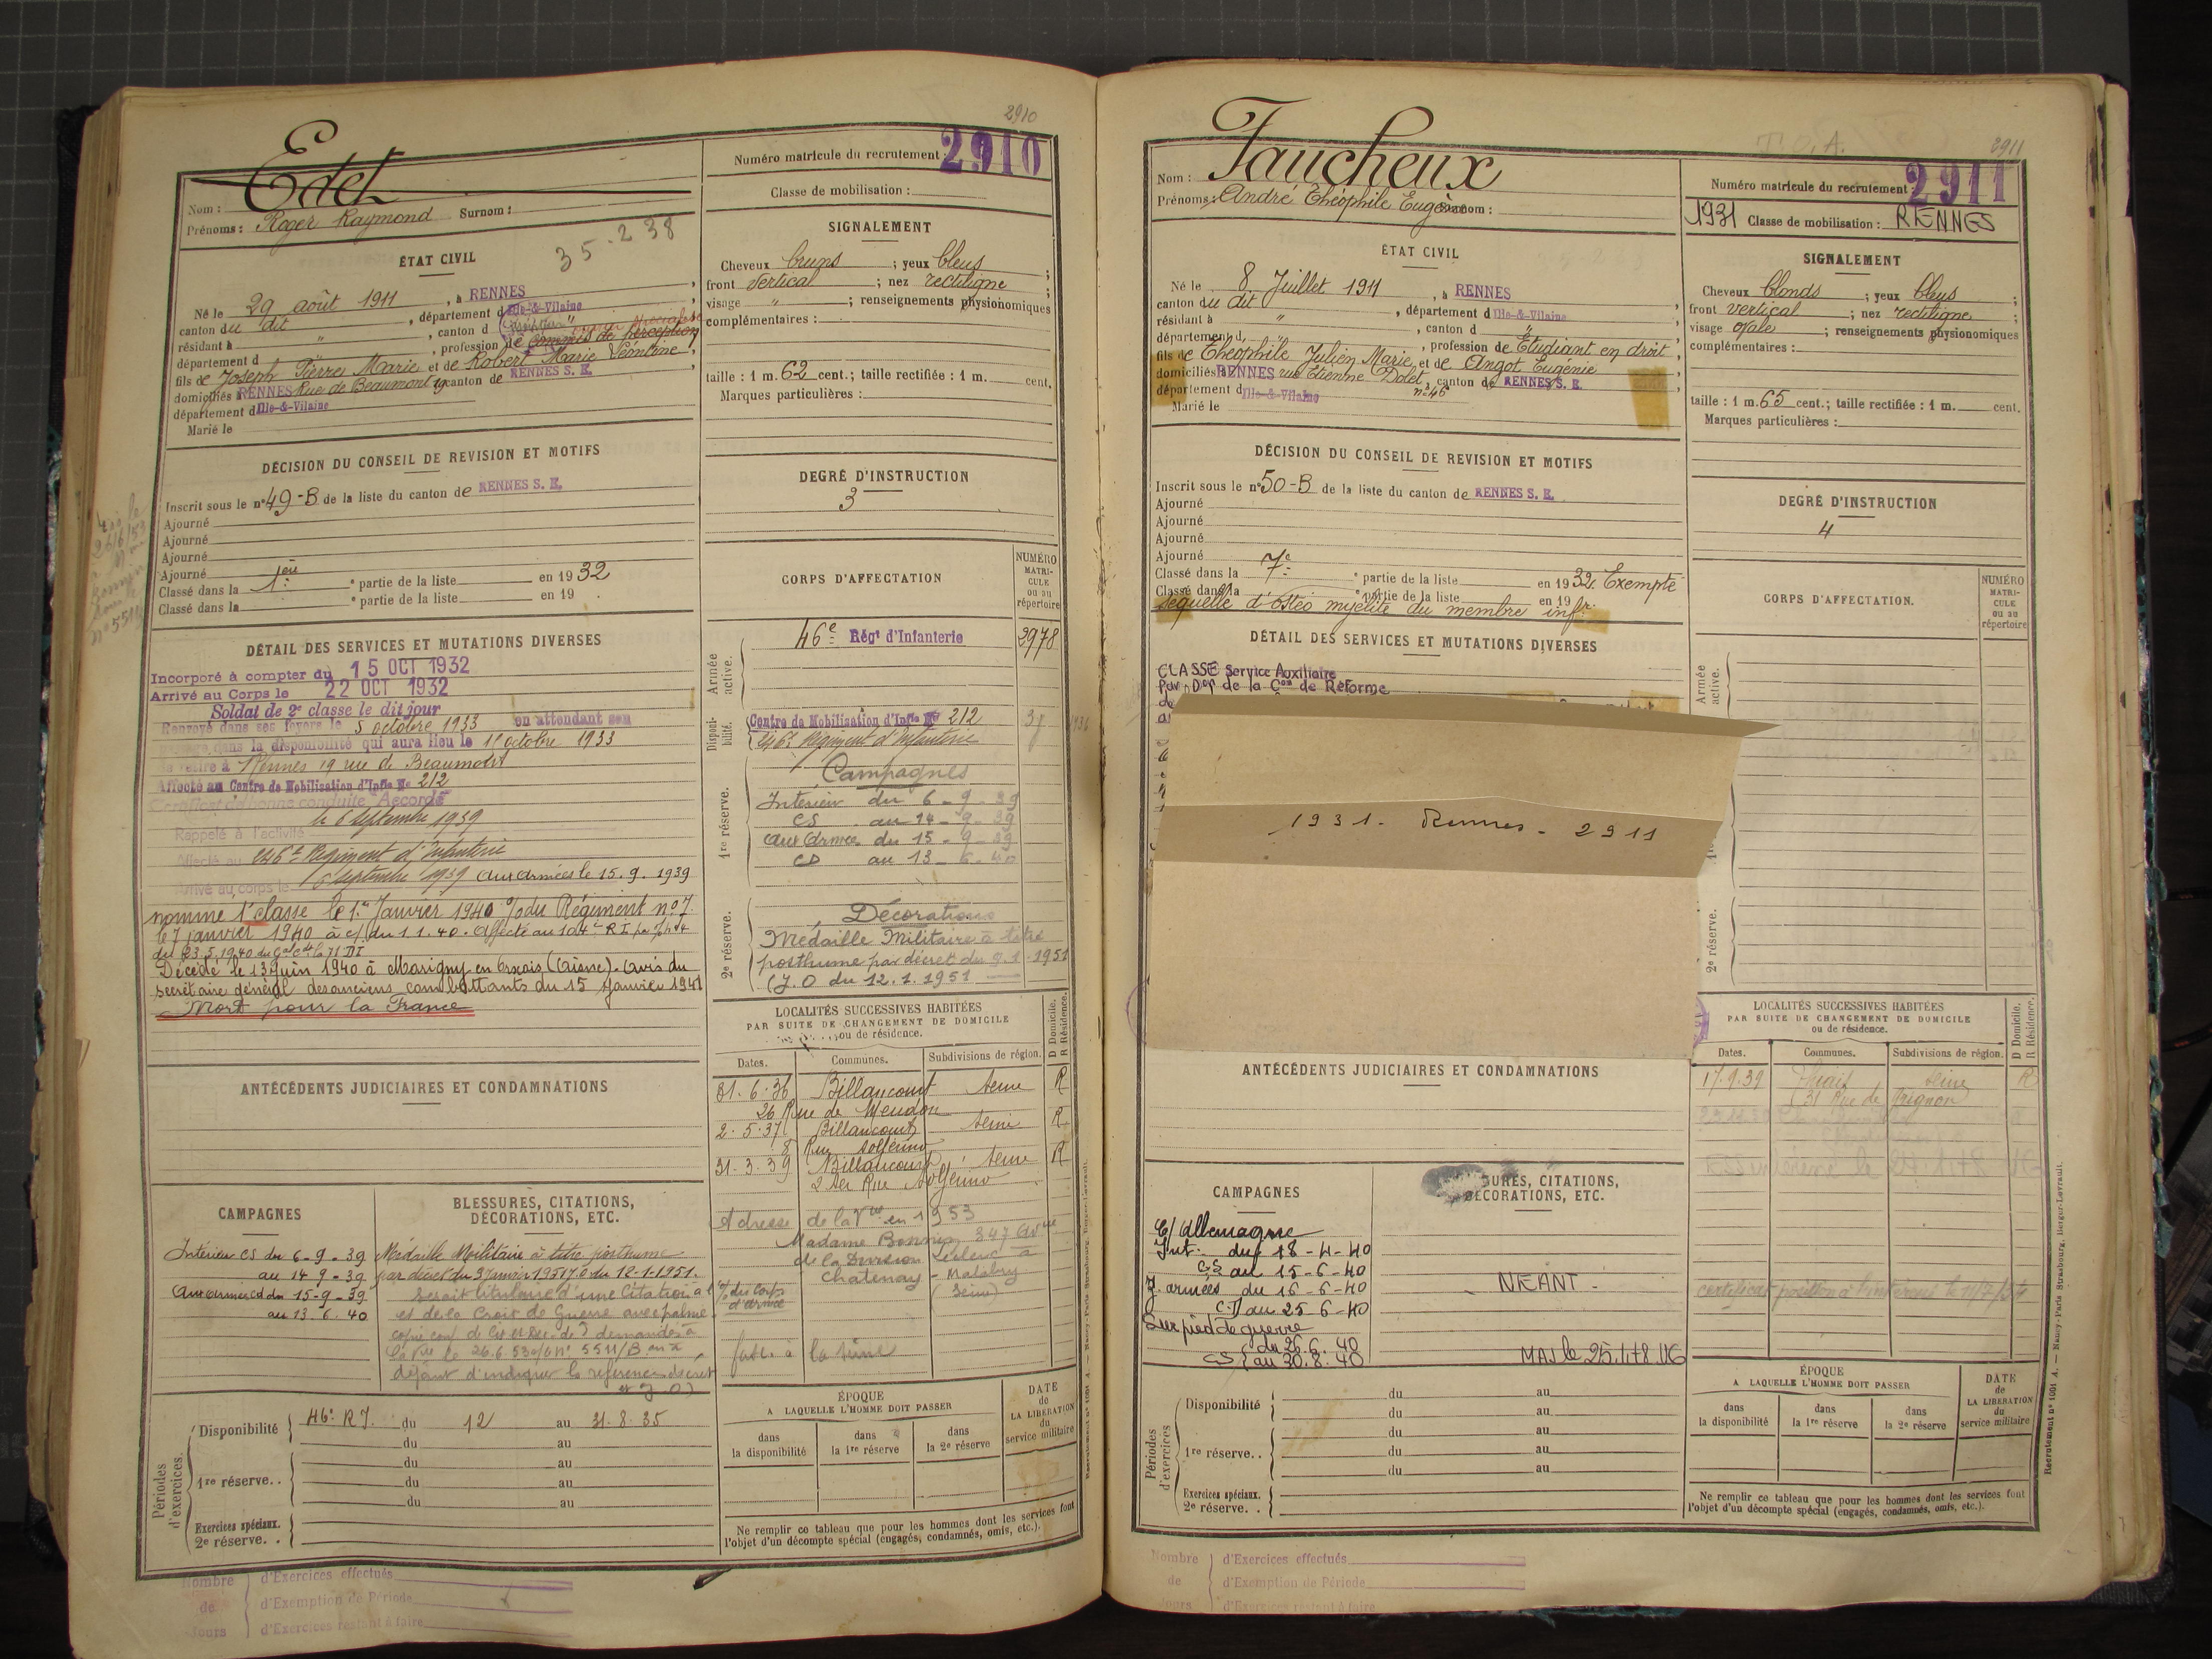 2910
Edet
Nom :
Prénoms : Roger Raymond Surnom :
35-238
Numéro matricule du recrutement : 2910
Classe de mobilisation :
ÉTAT CIVIL
Né le 29 août 1911, à RENNES
canton du dit, département d'Ille-&-Vilaine
résidant à " , canton d
département d , profession de commis de perception
fils de Joseph Pierre Marie et de Robert Marie Léontine,
domiciliés à RENNES Rue de Beaumont 19 canton de RENNES S. E.
département d'Ille-&-Vilaine
Marié le
SIGNALEMENT
Cheveux bruns ; yeux bleus ;
front vertical ; nez rectiligne ;
visage " ; renseignements physionomiques
complémentaires :
taille : 1 m. 62 cent.; taille rectifiée : 1 m. cent.
Marques particulières :
DÉCISION DU CONSEIL DE REVISION ET MOTIFS
Inscrit sous le n° 49-B de la liste du canton de RENNES S. E.
Ajourné
Ajourné
Ajourné
Ajourné
Classé dans la 1ère partie de la liste en 1932
Classé dans la partie de la liste en 19
DEGRÉ D'INSTRUCTION
3
CORPS D'AFFECTATION
NUMÉRO MATRICULE ou au répertoire
DÉTAIL DES SERVICES ET MUTATIONS DIVERSES
Incorporé à compter du 15 OCT 1932
Arrivé au Corps le 22 OCT 1932
Soldat de 2e classe le dit jour
Renvoyé dans ses foyers le 5 octobre 1933 en attendant son
passage dans la disponibilité qui aura lieu le 15 octobre 1933
Se retire à Rennes 19 rue de Beaumont
Affecté au Centre de Mobilisation d'Infie No 212
Certificat de bonne conduite "Accordé"
Rappelé à l'activité le 6 septembre 1939
Affecté au 246e Régiment d'Infanterie
Arrivé au corps le 6 septembre 1939 aux armées le 15.9.1939
nommé 1e classe le 1er Janvier 1940 o/ du Régiment n° 7
le 7 janvier 1940 à c/ du 1.1.40. Affecté au 104e R I
du 23.5.1940
Décédé le 13 juin 1940 à Marigny en Orxois (Aisne). Avis du
secrétaire général des anciens combattants du 15 Janvier 1941
Mort pour la France
Armée active.
46e Régt d'Infanterie 2978
Disponibilité.
Centre de Mobilisation d'Infie No 212
246e Régiment d'Infanterie
1re réserve.
Campagnes
Intérieur du 6-9-39
CS au 14-9-39
aux Armées du 15-9-39
CD au 13-6-40
2e réserve.
Décorations
Médaille Militaire à titre
posthume par décret du 9.1.1951
(J.O du 12.1.1951
LOCALITÉS SUCCESSIVES HABITÉES
PAR SUITE DE CHANGEMENT DE DOMICILE
ou de résidence.
D Domicile.
R Résidence.
Dates. Communes. Subdivisions de région.
31.6.36 Billancourt Seine R
26 Rue de Meudon
2.5.37 Billancourt Seine R
8 Rue Solférino
31.3.39 Billancourt Seine R
2 ter Rue Solférino
Adresse de la Vve en 1953
Madame 347 Avue
de la Division Leclerc à
Chatenay-Malabry
(Seine)
ANTÉCÉDENTS JUDICIAIRES ET CONDAMNATIONS
CAMPAGNES
Intérieur CS du 6-9-39
au 14-9-39
Aux armées CD du 15-9-39
au 13.6.40
BLESSURES, CITATIONS,
DÉCORATIONS, ETC.
Médaille Militaire à titre posthume
par décret du 9 Janvier 1951 J.O du 12-1-1951.
Serait titulaire d'une Citation à l'o/ du Corps d'armée
et de la Croix de Guerre avec palme
Périodes d'exercices.
Disponibilité 46e R I. du 12 au 31.8.35
du au
du au
1re réserve. . du au
du au
Exercices spéciaux.
2e réserve. .
ÉPOQUE
A LAQUELLE L'HOMME DOIT PASSER
dans la disponibilité
dans la 1re réserve
dans la 2e réserve
DATE de LA LIBÉRATION du service militaire
Ne remplir ce tableau que pour les hommes dont les services font
l'objet d'un décompte spécial (engagés, condamnés, omis, etc.).
Nombre de Jours
d'Exercices effectués
d'Exemption de Période
d'Exercices restant à faire
T.O.A.
2911
Nom : Faucheux
Prénoms : André Théophile Eugène Surnom :
Numéro matricule du recrutement : 2911
1931 Classe de mobilisation : RENNES
ÉTAT CIVIL
Né le 8 Juillet 1911, à RENNES
canton du dit, département d'Ille-&-Vilaine
résidant à " , canton d "
département d , profession de Etudiant en droit,
fils de Théophile Julien Marie et de Angot Eugénie
domiciliés à RENNES rue Etienne Dolet n° 46, canton de RENNES S. E.
département d'Ille-&-Vilaine
Marié le
SIGNALEMENT
Cheveux blonds ; yeux bleus ;
front vertical ; nez rectiligne ;
visage ovale ; renseignements physionomiques
complémentaires :
taille : 1 m. 65 cent.; taille rectifiée : 1 m. cent.
Marques particulières :
DÉCISION DU CONSEIL DE REVISION ET MOTIFS
Inscrit sous le n° 50-B de la liste du canton de RENNES S. E.
Ajourné
Ajourné
Ajourné
Ajourné
Classé dans la 7e partie de la liste en 1932 Exempté
Classé dans la partie de la liste en 19
séquelle d'Ostéo myélite du membre infr.
DEGRÉ D'INSTRUCTION
4
CORPS D'AFFECTATION.
NUMÉRO MATRICULE ou au répertoire
DÉTAIL DES SERVICES ET MUTATIONS DIVERSES
CLASSÉ Service Auxiliaire
par Don de la Con de Réforme
1931 - Rennes - 2911
Armée active.
2e réserve.
LOCALITÉS SUCCESSIVES HABITÉES
PAR SUITE DE CHANGEMENT DE DOMICILE
ou de résidence.
D Domicile.
R Résidence.
Dates. Communes. Subdivisions de région.
17.9.39 Thiais Seine R
(31 Rue de Grignon
ANTÉCÉDENTS JUDICIAIRES ET CONDAMNATIONS
CAMPAGNES
C/ Allemagne
Int. du 18-4-40
CS au 15-6-40
Z. armées du 16-6-40
C.D au 25-6-40
Sur pied de guerre
du 26.6.40
CS au 30.8.40
BLESSURES, CITATIONS,
DÉCORATIONS, ETC.
NEANT -
MAJ le 25.1.78
Périodes d'exercices
Disponibilité du au
du au
du au
1re réserve. . du au
du au
Exercices spéciaux.
2e réserve. .
ÉPOQUE
A LAQUELLE L'HOMME DOIT PASSER
dans la disponibilité
dans la 1re réserve
dans la 2e réserve
DATE de LA LIBÉRATION du service militaire
Ne remplir ce tableau que pour les hommes dont les services font
l'objet d'un décompte spécial (engagés, condamnés, omis, etc.).
Recrutement n° 1001 A. — Nancy-Paris Strasbourg, Berger-Levrault.
Nombre de Jours
d'Exercices effectués
d'Exemption de Période
d'Exercices restant à faire